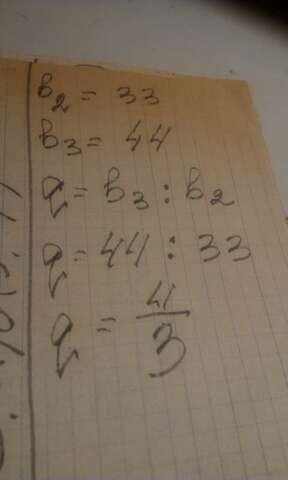 b₂ = 33
b₃ = 44
q = b₃ : b₂
q = 44 : 33
q = 4/3